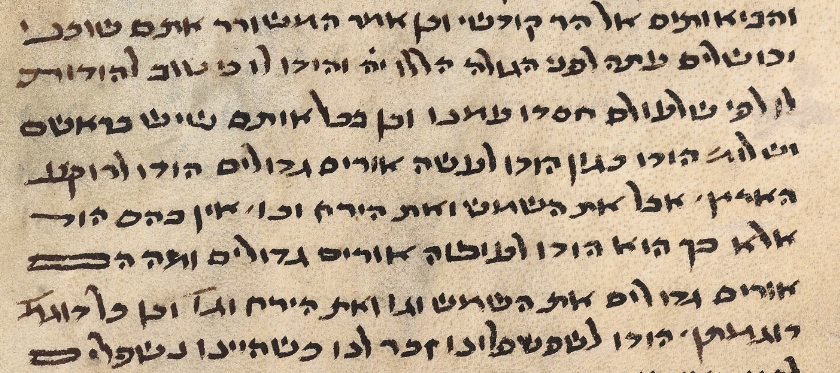 והביאותים אל הר קודשי וכן אמר המשורר אתם שוכני
ירושלים עתה לפני הגולה הללו יה והודו לו כי טוב להודות
לו לפי שלעולם חסדו עמנו וכן בכל אותם שיש בראשם
הודו כגון הודו לעשה אורים גדולים הודו לרוקע
הארץ אבל את השמש ואת הירח וכו' אין בהם הודו
אלא כך הוא הודו לעושה אורים גדולים ומה הם
אורים גדולים את השמש וגו ואת הירח וגו וכן כל דוגמ
דוגמתן הודו זכר לנו כשהיינו בשפל